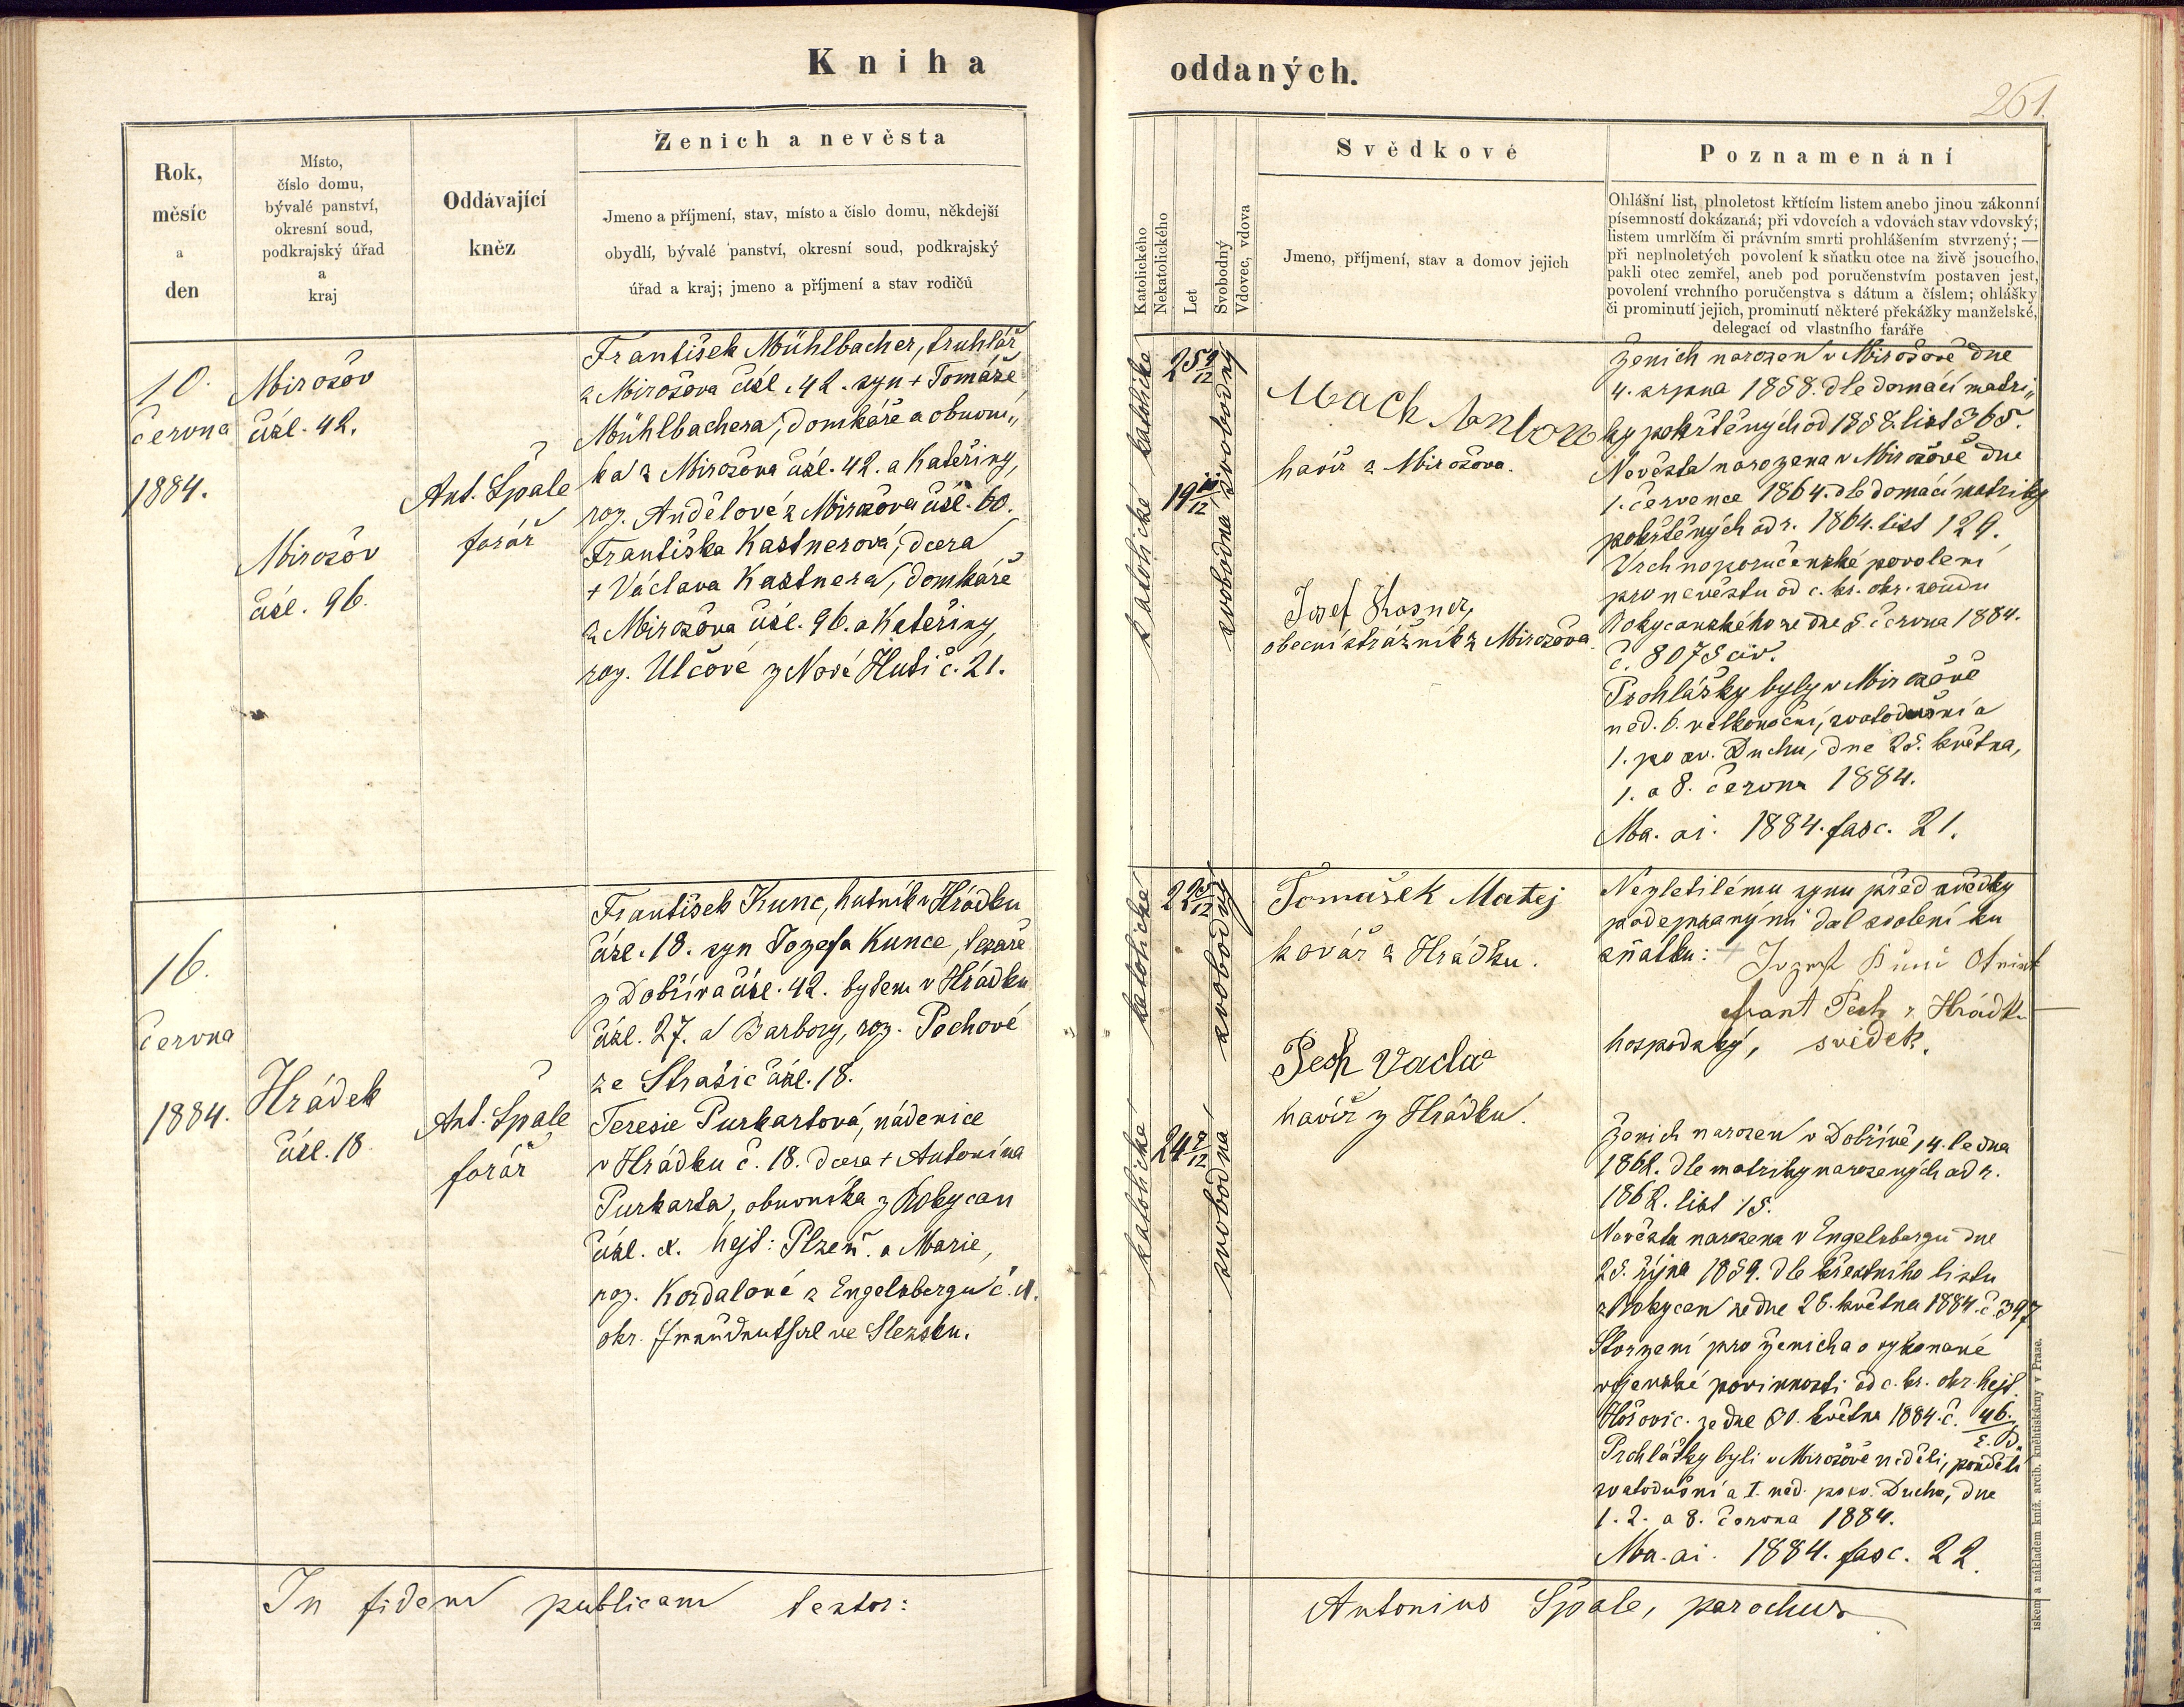 Kniha
oddaných.
261.
Rok,
měsíc
a
den
Místo,
číslo domu,
bývalé panství,
okresní soud,
podkrajský úřad
a
kraj
Oddávající
kněz
Ženich a nevěsta
Jmeno a příjmení, stav, místo a číslo domu, někdejší
obydlí, bývalé panství, okresní soud, podkrajský
úřad a kraj; jmeno a příjmení a stav rodičů
Katolického
Nekatolického
Let
Svobodný
Vdovec, vdova
Svědkové
Jmeno, příjmení, stav a domov jejich
Poznamenání
Ohlášní list, plnoletost křtícím listem anebo jinou zákonní
písemností dokázaná; při vdovcích a vdovách stav vdovský;
listem umrlčím či právním smrti prohlášením stvrzený; —
při neplnoletých povolení k sňatku otce na živě jsoucího,
pakli otec zemřel, aneb pod poručenstvím postaven jest,
povolení vrchního poručenstva s dátum a číslem; ohlášky
či prominutí jejich, prominutí některé překážky manželské,
delegací od vlastního faráře
10.
června
1884.
Mirošov
čísl. 42.
Mirošov
čísl. 96.
Ant. Špale
farář
František Mühlbacher, truhlář
z Mirošova čísl. 42. syn + Tomáše
Mühlbachera, domkáře a obuvní„
ka z Mirošova čísl. 42. a Kateřiny,
roz. Andělové z Mirošova čísl. 60.
Františka Kastnerová, dcera
+ Václava Kastnera, domkáře
z Mirošova čísl. 96. a Kateřiny,
roz. Ulčové z Nové Huti č. 21.
katolické
25 9/12
svobodný
katolické
19 11/12
svobodná
Mach Anton
havíř z Mirošova.
Josef Kasner,
obecní strážník z Mirošova.
Ženich narozen v Mirošově dne
4. srpna 1858. dle domácí matri„
ky pokřtěných od 1858. list 365.
Nevěsta narozena v Mirošově dne
1. července 1864. dle domácí matriky
pokřtěných od r. 1864. list 129.
Vrchnoporučenské povolení
pro nevěstu od c. kr. okr. soudu
Rokycanského ze dne 5. června 1884.
č. 8075 civ.
Prohlášky byly v Mirošově
ned. 6. velkonoční, svatodušní a
1. po sv. Duchu, dne 25. května,
1. a 8. června 1884.
Ma. ai. 1884. fasc. 21.
16.
června
1884.
Hrádek
čísl. 18
Ant. Špale
farář
František Kunc, hutník v Hrádku
čísl. 18. syn Josefa Kunce, tesaře
z Dobříva čísl. 42. bytem v Hrádku
čísl. 27. a Barbory, roz. Pechové
ze Strašic čísl. 18.
Teresie Purkartová, nádenice
v Hrádku č. 18. dcera + Antonína
Purkarta, obuvníka z Rokycan
čísl. x. hejt: Plzeň. a Marie,
roz. Kordalové z Engelsbergu č. x.
okr. Freudenthal ve Slezsku.
katolické
22 5/12
svobodný
katolické
24 7/12
svobodná
Tomašek Matej
kovář z Hrádku.
Pech Vaclav
havíř z Hrádku.
Nezletilému synu před svědky
podepsanými dal svolení ku
sňatku:
Frant Pech z Hrádku
hospodský, svědek.
Ženich narozen v Dobřívě, 4. ledna
1862. dle matriky narozených od r.
1862. list 15.
Nevěsta narozena v Engelsbergu dne
25. října 1859. dle křestního listu
z Rokycan ze dne 28. května 1884. č 397
Stvrzení pro ženicha o vykonané
vojenské povinnosti od c. kr. okr. hejt.
Hořovic. ze dne 30. května 1884. č. 46.
Prohlášky byli v Mirošově neděli, pondělí
svatodušní a I. ned. po sv. Duchu, dne
1. 2. a 8. června 1884.
Ma. ai. 1884. fasc. 22.
In fidem publicam testor:
Antonius Špale, parochus
iskem a nákladem kníž. arcib. knihtiskárny v Praze.